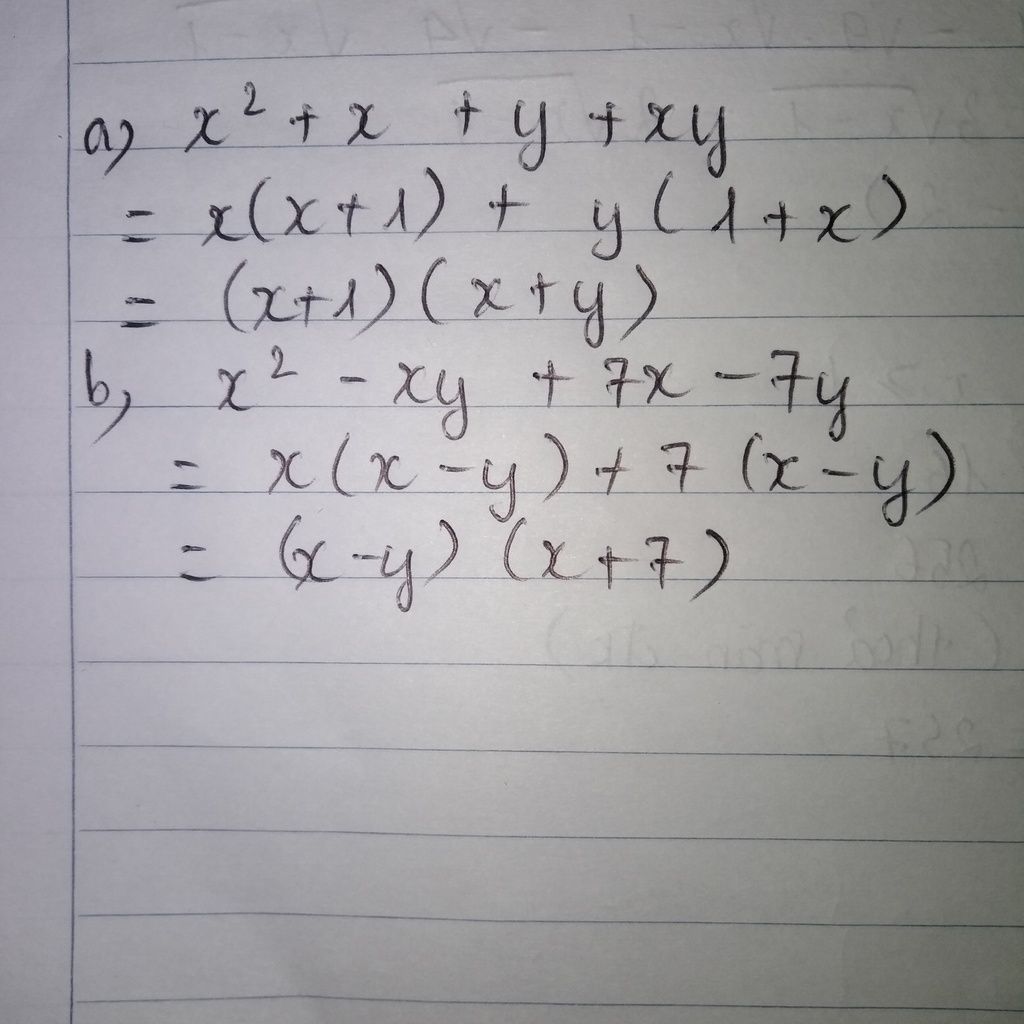 a) x² + x + y + xy
= x(x+1) + y(1+x)
= (x+1)(x+y)
b) x² - xy + 7x - 7y
= x(x-y) + 7(x-y)
= (x-y)(x+7)